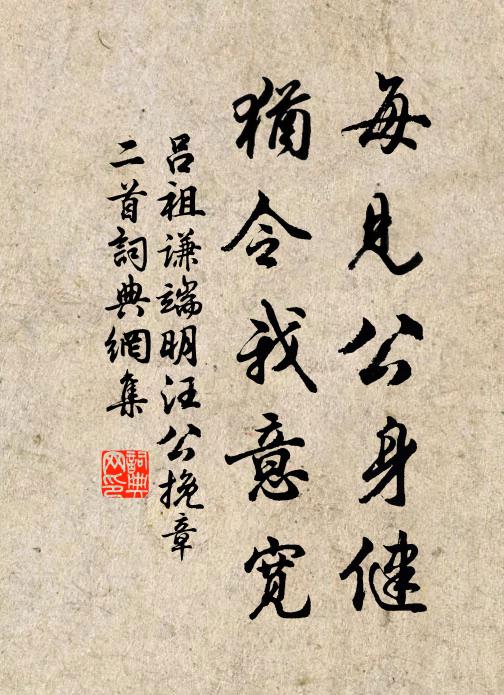 每見公身健
猶令我意寬
呂祖谦端明汪公挽章
二首詞典網集
詞典
网印